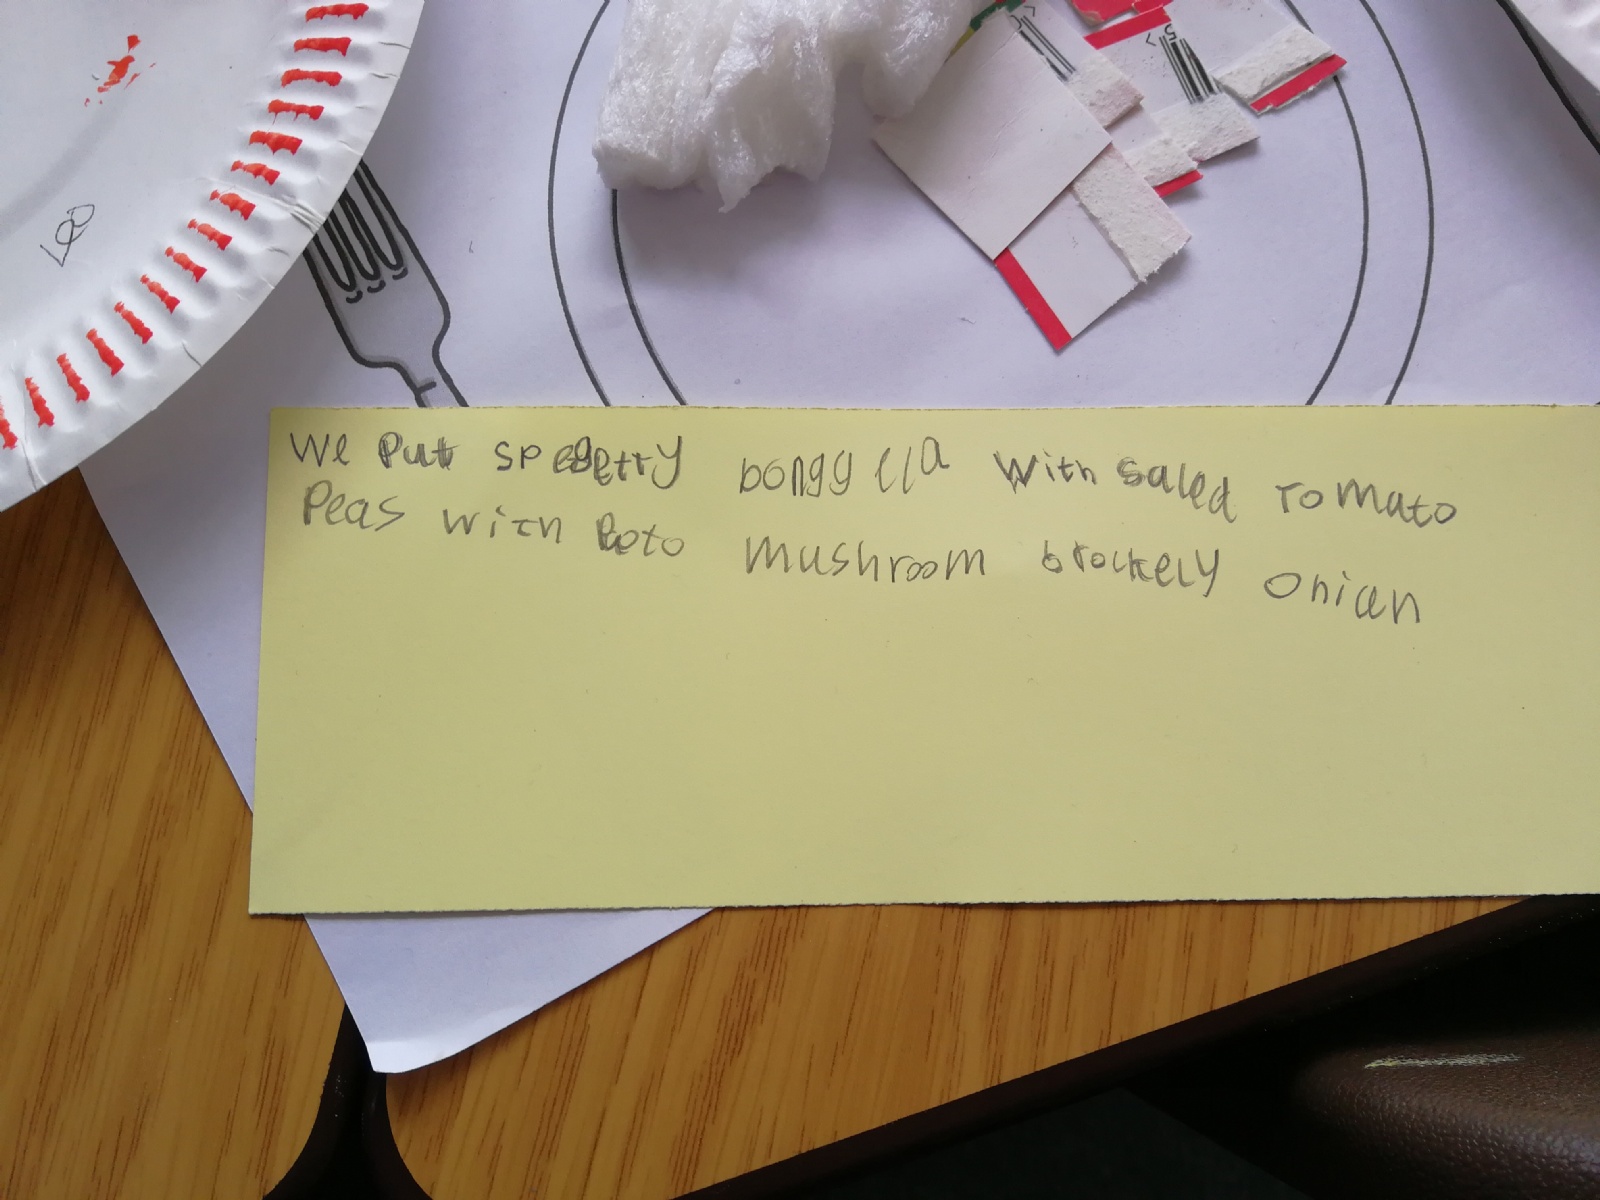 Leo
We Put spegetty bonggella with saled Tomato
Peas with Poto mushroom brockely onian